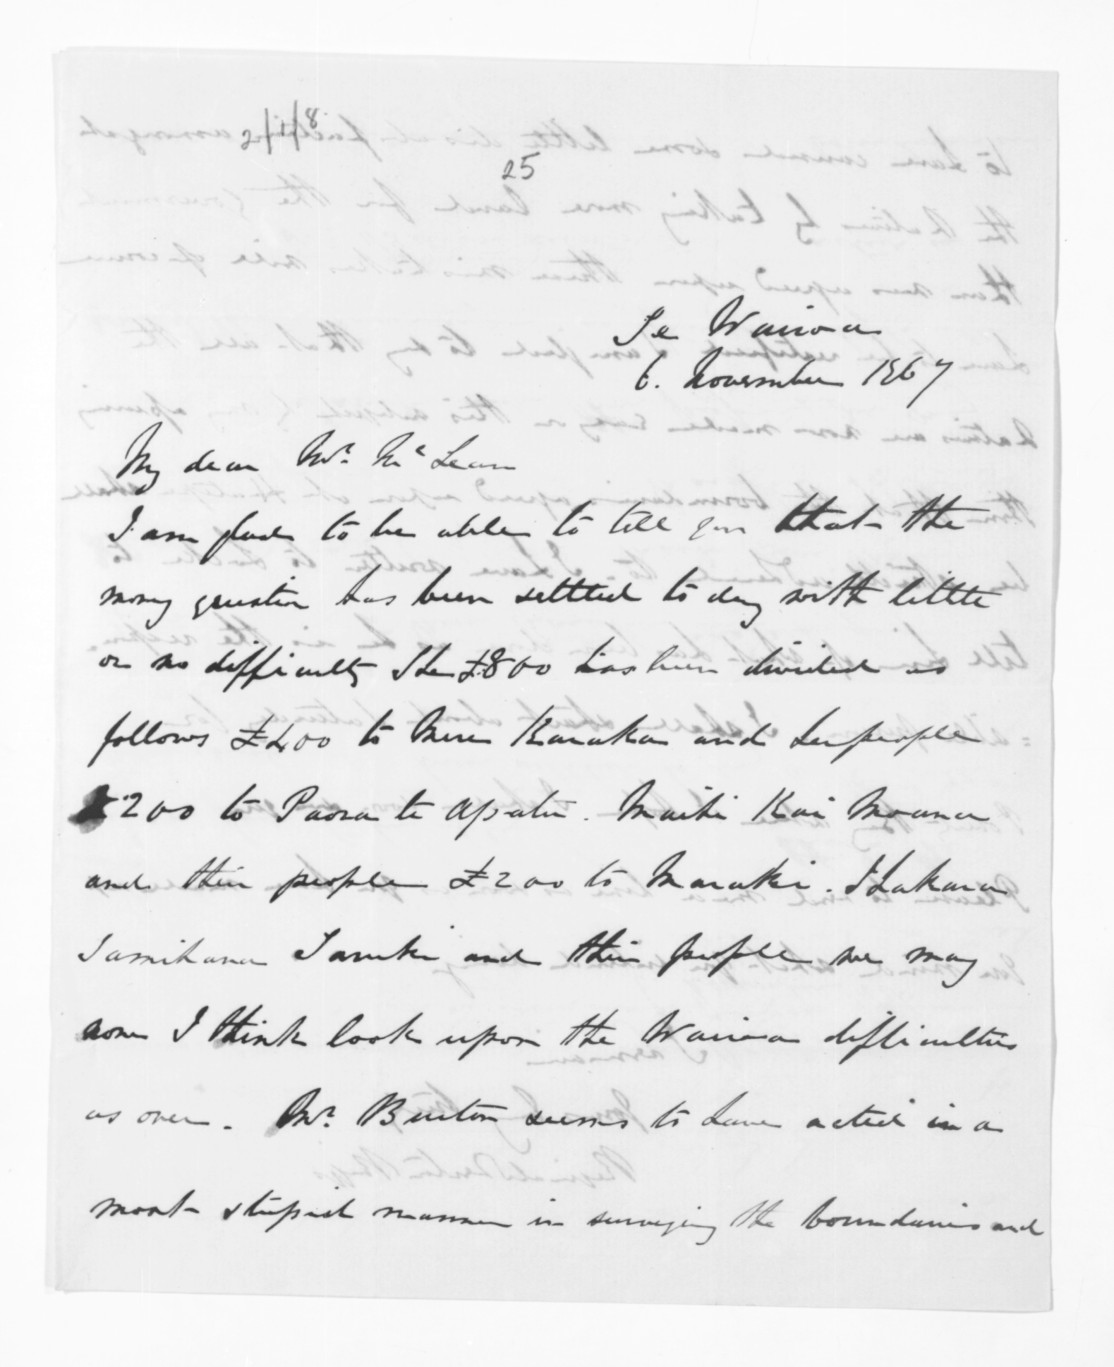 25
Te Wairoa
6. November 1867
My dear Mr. McLean
I am glad to be able to tell you that the
money question has been settled to day with little
or no difficulty The £800 has been divided as
follows £400 to Mere Karaka and her people
£200 to Paora te Apatu. Maihi Kai Moana
and their people £200 to Maraki. Ihakara
Tamihana Taruke and their people we may
now I think look upon the Wairoa difficulties
as over. Mr. Burton seems to have acted in a
most stupid manner in surveying the boundaries and